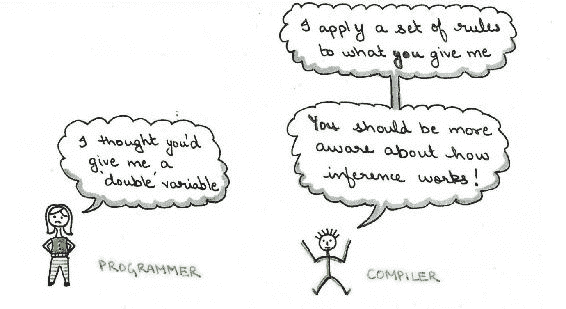 I thought you'd
give me a
'double' variable
PROGRAMMER
I apply a set of rules
to what you give me
You should be more
aware about how
inference works!
COMPILER